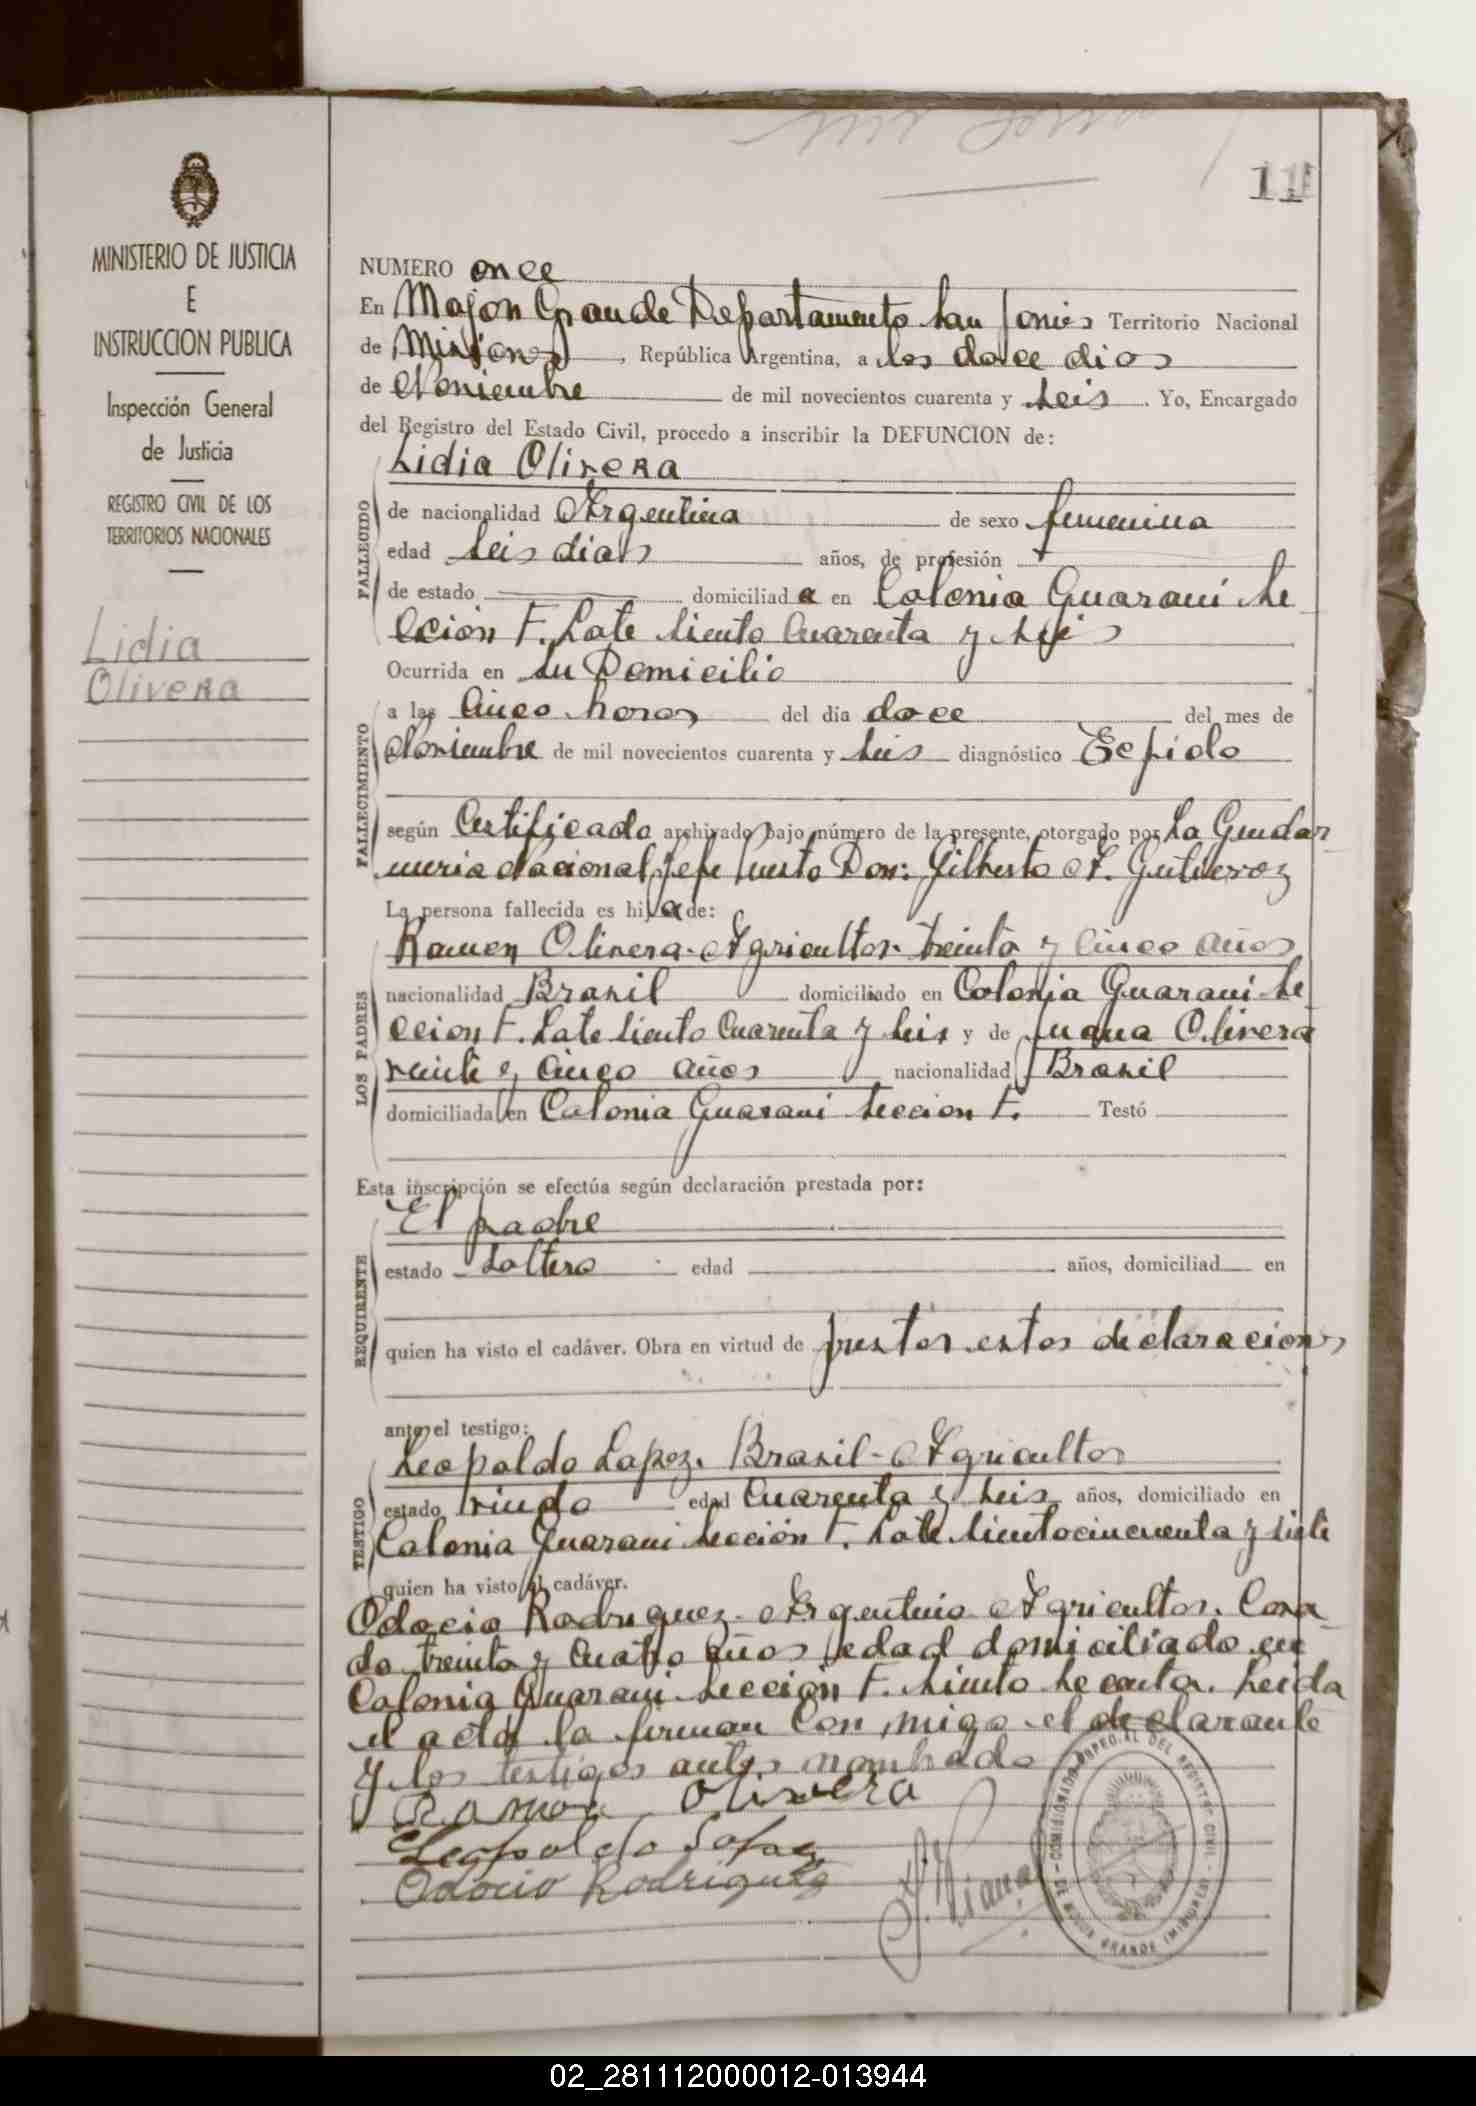 11
MINISTERIO DE JUSTICIA
E
INSTRUCCION PUBLICA
Inspección General
de Justicia
REGISTRO CIVIL DE LOS
TERRITORIOS NACIONALES
Lidia
Olivera
NUMERO once
En Mojon Grande Departamento San Javier Territorio Nacional
de Misiones, República Argentina, a los doce dias
de Noviembre de mil novecientos cuarenta y seis. Yo, Encargado
del Registro del Estado Civil, procedo a inscribir la DEFUNCION de:
Lidia Olivera
FALLECIDO
de nacionalidad Argentina de sexo femenina
edad seis dias años, de profesión
de estado domiciliada en Colonia Guarani Se
ccion F. Lote Siento Cuarenta y seis
Ocurrida en su Domicilio
FALLECIMIENTO
a las Cinco horas del día doce del mes de
Noviembre de mil novecientos cuarenta y seis diagnóstico
según Certificado archivado bajo número de la presente, otorgado por la Gendar
meria Nacional Jefe Puesto Don: Gilberto A. Gutierrez
La persona fallecida es hija de:
LOS PADRES
Ramon Olivera. Agricultor. treinta y cinco años
nacionalidad Brasil domiciliado en Colonia Guarani Se
ccion F. Lote Siento Cuarenta y seis y de Juana Olivera
veinti y cinco años nacionalidad Brasil
domiciliada en Colonia Guarani Seccion F. Testó
Esta inscripción se efectúa según declaración prestada por:
REQUIRENTE
El padre
estado Soltero edad años, domiciliad en
quien ha visto el cadáver. Obra en virtud de prestar estas declaracions
ante el testigo:
TESTIGO
Leopoldo Lopez. Brasil - Agricultor
estado viudo edad Cuarenta y seis años, domiciliado en
Colonia Guarani Sección F. Lote Sientocincuenta y siete
quien ha visto el cadáver.
Odocio Rodriguez. Argentino Agricultor. Casa
do treinta y cuatro años edad domiciliado en
Colonia Guarani Sección F. Siento Secenta. Leida
el acta la firman Con migo el declarante
y los testigos antes nombrado
Ramon Olivera
Leopoldo Lopez
Odocio Rodriguez
COMISIONADO AD. DEL REGISTRO CIVIL - DE MOJON GRANDE (MISIONES)
02_281112000012-013944